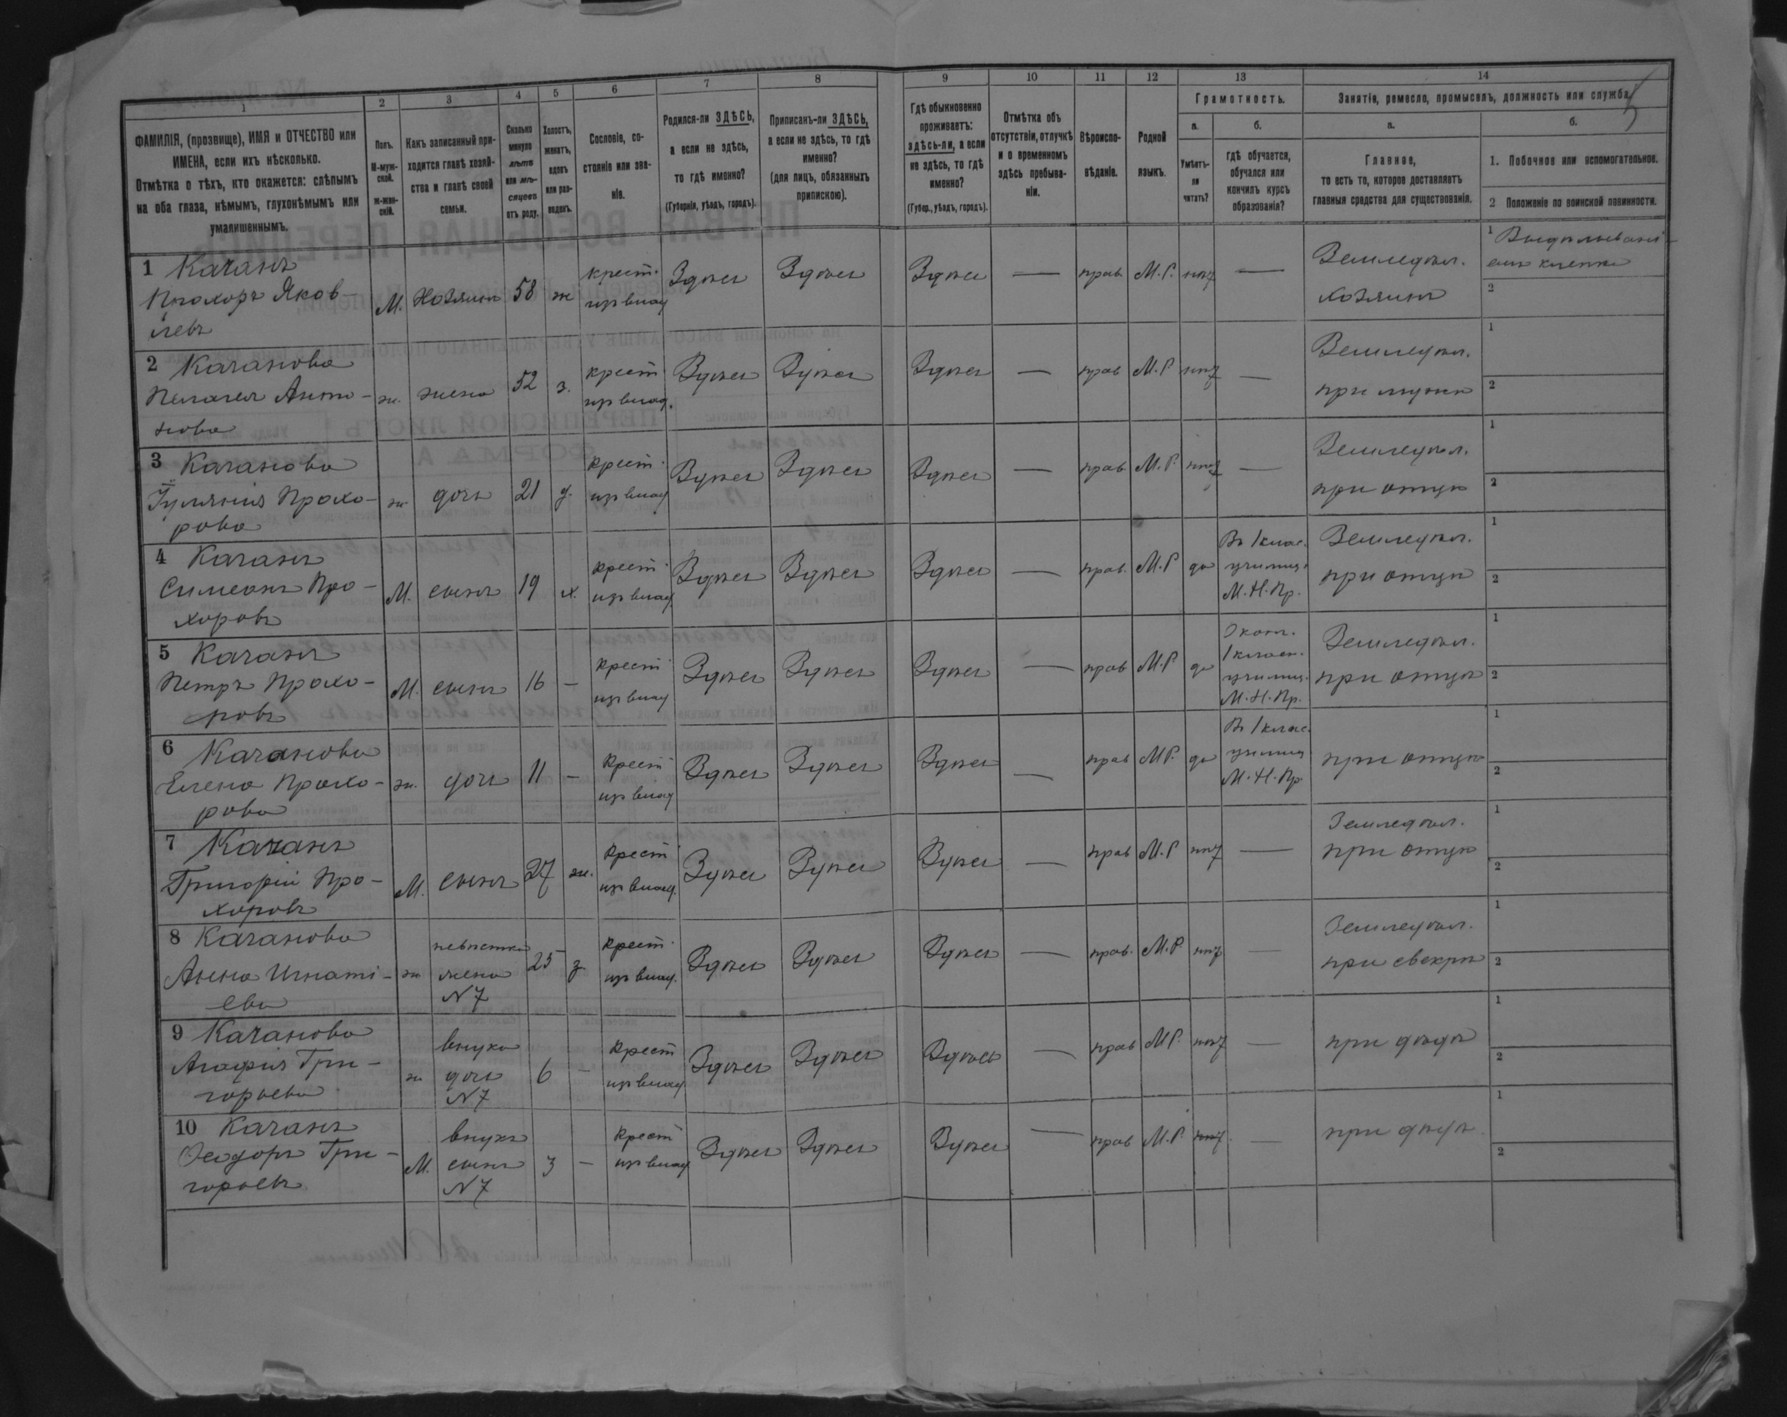 1 2 3 4 5 6 7 8 9 10 11 12 13 14
ФАМИЛІЯ, (прозвище), ИМЯ и ОТЧЕСТВО или ИМЕНА, если ихъ нѣсколько.
Отмѣтка о тѣхъ, кто окажется: слѣпымъ на оба глаза, нѣмымъ, глухонѣмымъ или умалишеннымъ.
Полъ. М-мужской. Ж-женскій.
Какъ записанный приходится главѣ хозяйства и главѣ своей семьи.
Сколько минуло лѣтъ или мѣсяцевъ отъ роду.
Холостъ, женатъ, вдовъ или разведенъ.
Сословіе, состояніе или званіе.
Родился-ли ЗДѢСЬ, а если не здѣсь, то гдѣ именно? (Губернія, уѣздъ, городъ).
Приписанъ-ли ЗДѢСЬ, а если не здѣсь, то гдѣ именно? (для лицъ, обязанныхъ припискою).
Гдѣ обыкновенно проживаетъ: здѣсь-ли, а если не здѣсь, то гдѣ именно? (Губер., уѣздъ, городъ).
Отмѣтка объ отсутствіи, отлучкѣ и о временномъ здѣсь пребываніи.
Вѣроисповѣданіе.
Родной языкъ.
Грамотность.
а. Умѣетъ-ли читать?
б. Гдѣ обучается, обучался или кончилъ курсъ образованія?
Занятіе, ремесло, промыселъ, должность или служба.
а. Главное, то есть то, которое доставляетъ главныя средства для существованія.
б.
1. Побочное или вспомогательное.
2 Положеніе по воинской повинности.
1 Качанъ Прохоръ Яковлевъ М. хозяинъ 58 ж крест. изъ влад Здѣсь Здѣсь Здѣсь — прав. М.Р. нѣт — Земледѣл. хозяинъ 1 2
2 Качанова Пелагея Антонова ж. жена 52 з. крест. изъ влад. Здѣсь Здѣсь Здѣсь — прав М.Р нѣт — Земледѣл. при мужѣ 1 2
3 Качанова Іуліянія Прохорова ж. дочь 21 д. крест. изъ влад Здѣсь Здѣсь Здѣсь — прав М.Р. нѣт — Земледѣл. при отцѣ 1 2
4 Качанъ Симеонъ Прохоровъ М. сынъ 19 х. крест. изъ влад Здѣсь Здѣсь Здѣсь — прав. М.Р да Въ 1 клас. училищ. М.Н.Пр. Земледѣл. при отцѣ 1 2
5 Качанъ Петръ Прохоровъ М. сынъ 16 — крест изъ влад Здѣсь Здѣсь Здѣсь — прав М.Р да 1 класн. училищ. М.Н.Пр. Земледѣл. при отцѣ 1 2
6 Качанова Елена Прохорова ж. дочь 11 — крест изъ влад Здѣсь Здѣсь Здѣсь — прав М.Р. да Въ 1 клас. училищ М.Н.Пр. при отцѣ 1 2
7 Качанъ Григорій Прохоровъ М. сынъ 27 ж. крест изъ влад. Здѣсь Здѣсь Здѣсь — прав М.Р нѣт — Земледѣл. при отцѣ 1 2
8 Качанова Анна Игнатіева ж невѣстка жена N7 25 з крест. изъ влад. Здѣсь Здѣсь Здѣсь — прав. М.Р нѣт — Земледѣл. при свекрѣ 1 2
9 Качанова Агафія Григорьева ж внука дочь N7 6 — крест изъ влад Здѣсь Здѣсь Здѣсь — прав М.Р. нѣт — при дѣдѣ 1 2
10 Качанъ Ѳеодоръ Григорьевъ М. внукъ сынъ N7 3 — крест изъ влад Здѣсь Здѣсь Здѣсь — прав М.Р. нѣт — при дѣдѣ 1 2